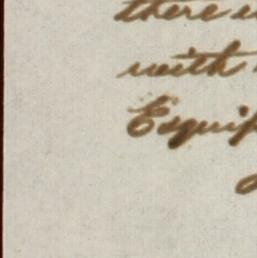 there
with
Equip